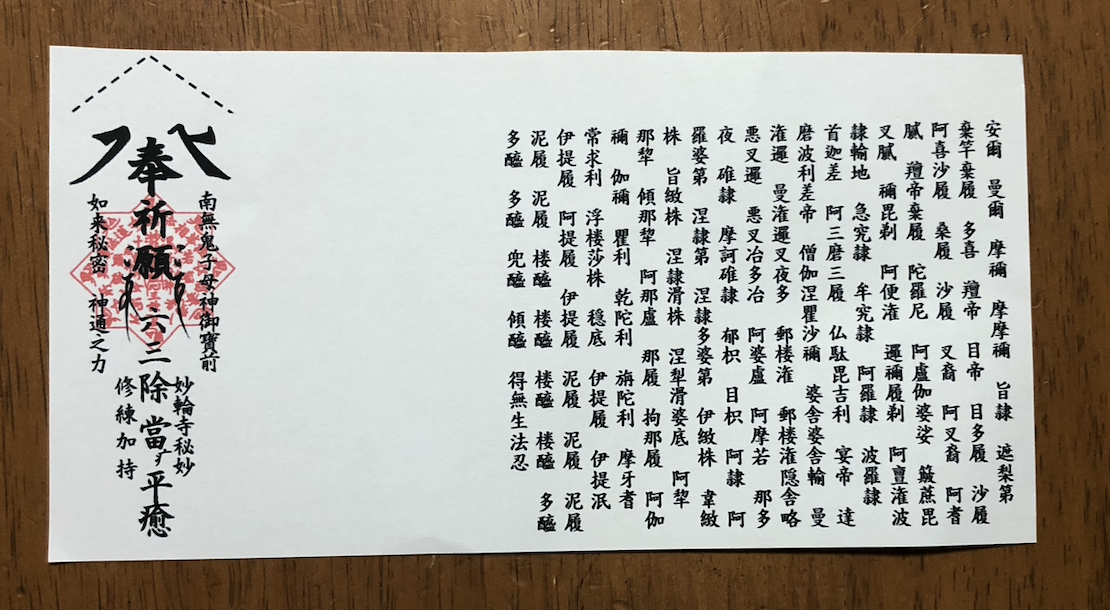 安爾 曼爾 摩禰 摩摩禰 旨隷 遮梨第
棄竿棄履 多喜 羶帝 目帝 目多履 沙履
阿喜沙履 桑履 沙履 叉裔 阿叉裔 阿耆
膩 羶帝棄履 陀羅尼 阿盧伽婆娑 簸蔗毘
叉膩 禰毘剃 阿便漼 邏禰履剃 阿亶漼波
隷輸地 急究隷 牟究隷 阿羅隷 波羅隷
首迦差 阿三磨三履 仏駄毘吉利 宴帝 達
磨波利差帝 僧伽涅瞿沙禰 婆舎婆舎輸 曼
漼邏 曼漼邏叉夜多 郵楼漼 郵楼漼隠舎略
悪叉邏 悪叉冶多冶 阿婆盧 阿摩若 那多
夜 碓隷 摩訶碓隷 郁枳 目枳 阿隷 阿
羅婆第 涅隷第 涅隷多婆第 伊緻株 韋緻
株 旨緻株 涅隷滑株 涅犁滑婆底 阿犂
那犂 傾那犂 阿那盧 那履 拘那履 阿伽
禰 伽禰 瞿利 乾陀利 旃陀利 摩牙耆
常求利 浮楼莎株 穏底 伊提履 伊提泯
伊提履 阿提履 伊提履 泥履 泥履 泥履
泥履 泥履 楼醯 楼醯 楼醯 楼醯 多醯
多醯 多醯 兜醯 傾醯 得無生法忍
南無鬼子母神御寶前
妙輪寺秘妙
奉祈願 六三除當病平癒
如来秘密 神通之力
修練加持